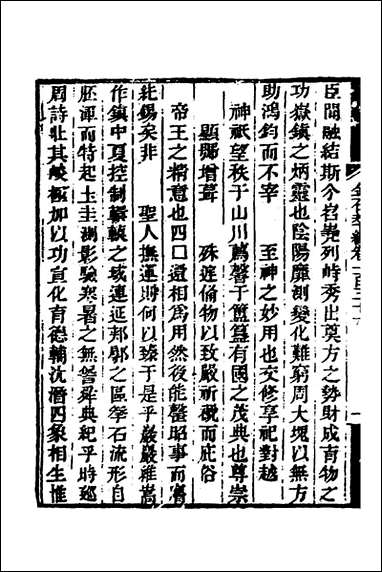 金石萃編卷一百三十
臣聞融結斯分岧嶤列峙秀出奠方之勢財成育物之
功嶽鎮之炳靈也陰陽靡測變化難窮周大塊以無方
助鴻鈞而不宰　　至神之妙用也交修享祀對越
神祇望秩于山川薦馨于簠簋有國之茂典也尊崇
顯號增葺　　殊庭備物以致嚴祈禠而庇俗
帝王之精意也四口還相為用然後能罄昭事而膺
純錫矣非　　聖人撫運則何以臻于是乎巖巖維嵩
作鎮中夏控制轘轅之域連延郊鄏之區孕石流形自
胚渾而特起土圭測影驗寒暑之無諐舜典紀乎時廵
周詩壯其峻極加以功宣化育德輔沈潛四象相生惟